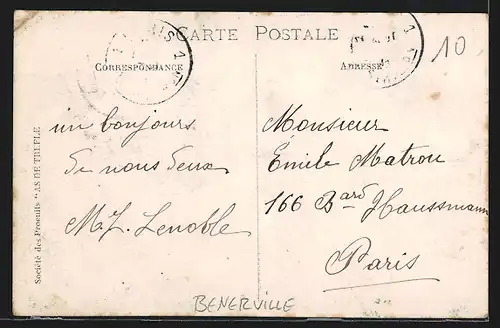 CARTE POSTALE
10
CORRESPONDANCE
ADRESSE
un bonjours
de nous deux
M.L. Lenoble
Monsieur
Emile Matrou
166 Bard Haussmann
Paris
Société des Produits "AS DE TREFLE
BENERVILLE